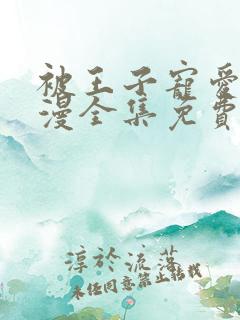 被王子寵愛
漫全集免費
淳於流落
未經同意禁止轉載